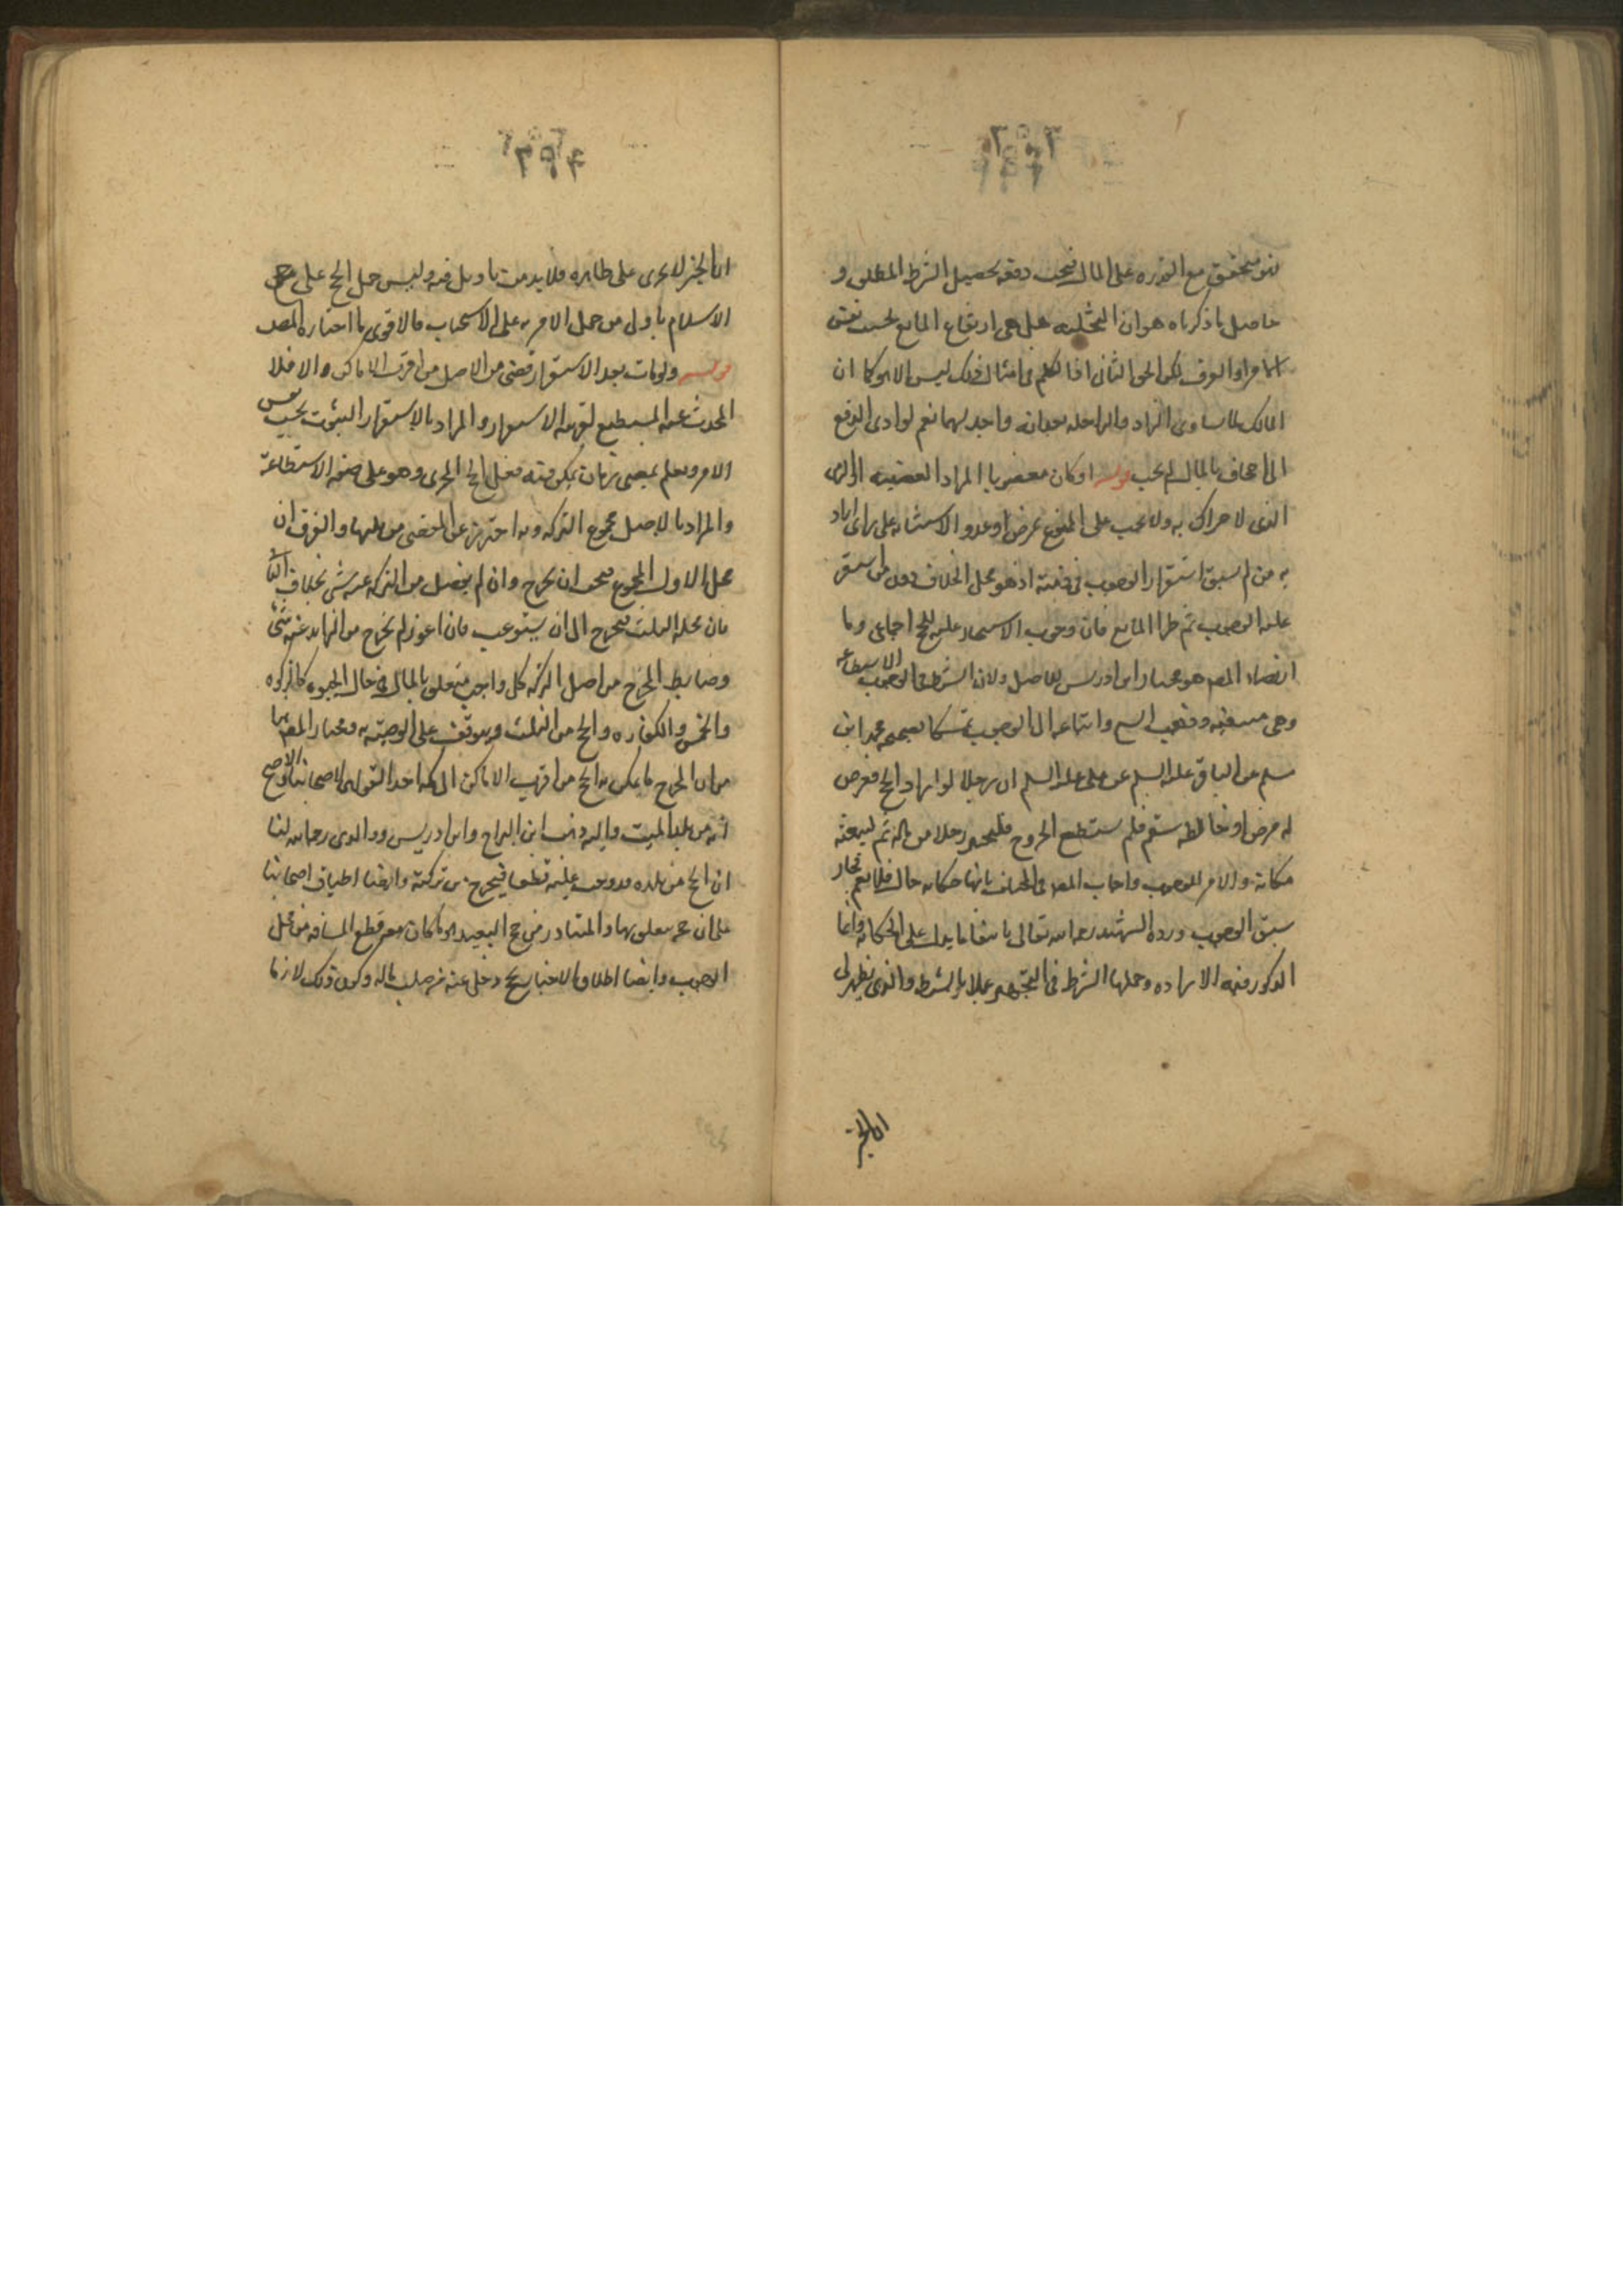 فهو متحقق مع القدره على المال فيجب دفعه لتحصيل الشرط المطلق و
حاصل ما ذكرناه هو ان التخليه هل هى ارتفاع المانع بحسب نفس
الامر او العرف لكن الحق الثانى اذا لكلم فى امثال ذلك ليس الا هو كما ان
المالك لما ساوى الزاد والراحله بعد انه واجد لهما نعم لو ادى الدفع
الى اجحاف بالمال لم يجب قوله او كان معضوبا المراد العضب
الذى لا حراك به ولا يجب على الممنوع بمرض او عدو الاستنابه على راى اراد
به من لم يسبق استقرار الوجوب فى ذمته اذ هو محل الخلاف دون من استقر
عليه الوجوب ثم طرا المانع فان وجوب الاستيجار عليه للحج اجماعى وما
ارتضاه المص هو مختار ابن ادريس للاصل ولان الشرط فى الوجوب الاستطاعه
وهى منتفيه وذهب الشيخ واتباعه الى الوجوب تمسكا بصحيحه محمد ابن
مسلم عن الباقر عليه السلم عن على عليه السلم ان رجلا لو اراد الحج فعرض
له مرض او خالطه سقم فلم يستطع الخروج فليجهز رجلا من ماله ثم ليبعثه
مكانه والامر للوجوب واجاب المص فى المختلف بانها حكايه حال فلا تعم فجاز
سبق الوجوب ورده الشهيد رحمه الله تعالى بانتفاء ما يدل على الحكايه وانما
المذكور فيه الاراده وجعلها الشرط فى التجهيز عملا بالشرط والذى يظهر لى
ان الخبر
ان الخبر لا يجرى على ظاهره فلا بد من تاويل فيه وليس حمل الحج على حج
الاسلام باولى من حمل الامر به على الاستحباب فالاقوى ما اختاره المص
قوله ولو مات بعد الاستقرار قضى من الاصل من اقرب الاماكن والا فلا
المحدث عنه المستطيع لقوله الاستقرار والمراد بالاستقرار الثبوت بحسب نفس
الامر ويعلم بمضى زمان يمكن فيه فعل الحج المجزى وهو على صفه الاستطاعة
والمراد بالاصل مجموع التركه وبه احترز عن المقضى من ثلثها والفرق ان
محل الاول المجموع فيجب ان يخرج وان لم يفضل من التركه عنه شىء بخلاف الثانى
فان محله الثلث فيخرج الى ان يستوعب فان اعوز لم يخرج من الزايد عنه شىء
وضابط المخرج من اصل التركه كل واجب متعلق بالمال فى حال الحيوه كالزكوه
والخمس والكفاره والحج من الثلث ويتوقف على الوصيه به ومختار المص هنا
من ان المخرج ما يمكن به الحج من اقرب الاماكن الى مكه احد القولين لاصحابنا والاصح
انه من بلد الميت واليه ذهب ابن البراج وابن ادريس ووالدى رحمه الله لنا
ان الحج من بلده قد وجب عليه قطعا فيخرج من تركته وايضا اطباق اصحابنا
على ان عمر متعلق بها والمتبادر من حج البعيد انما كان معه قطع المسافه من محل
الوجوب وايضا اطلاق الاخبار بحج رجل عنه من صلب ماله وكون ذلك لازما